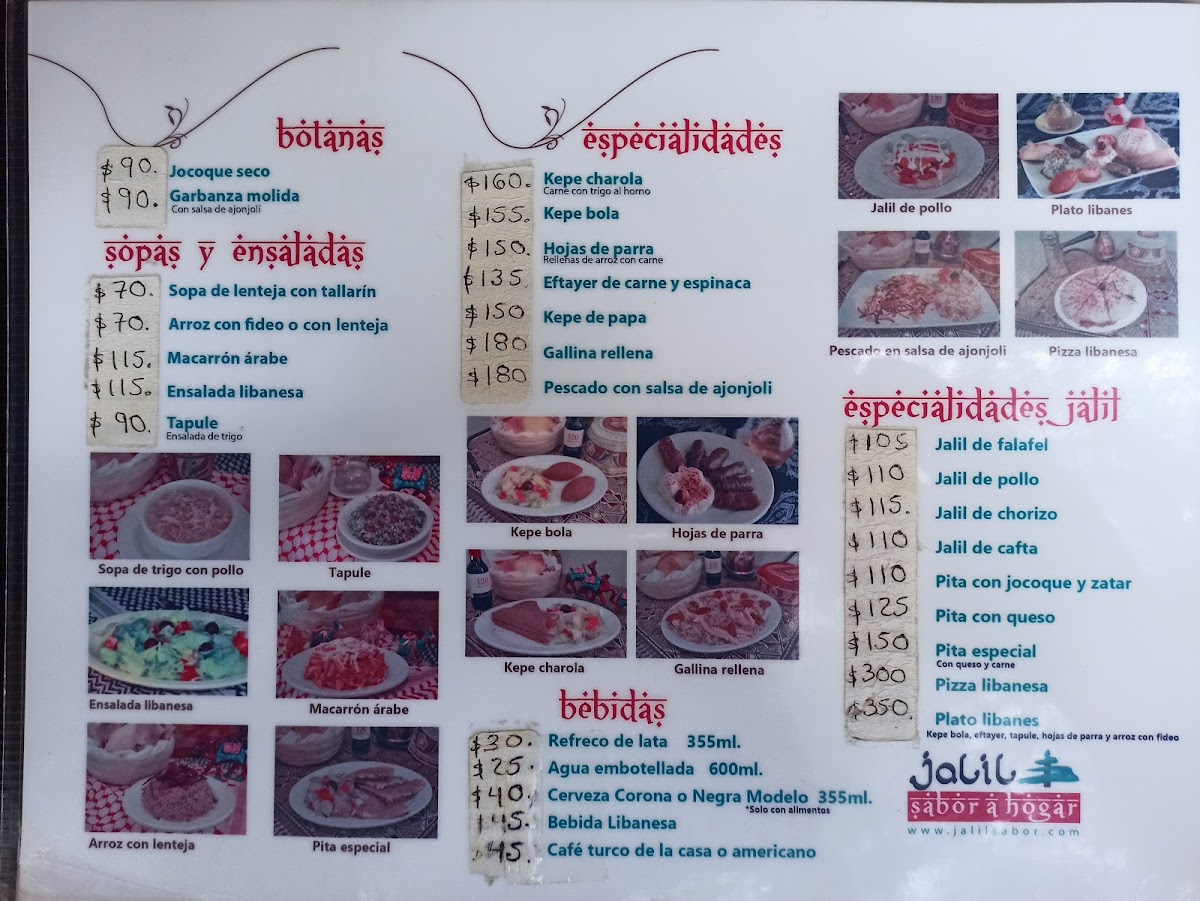 Botanas
$90. Jocoque seco
$90. Garbanza molida
Con salsa de ajonjolí
Sopas y Ensaladas
$70. Sopa de lenteja con tallarín
$70. Arroz con fideo o con lenteja
$115. Macarrón árabe
$115. Ensalada libanesa
$90. Tapule
Ensalada de trigo
Sopa de trigo con pollo
Tapule
Ensalada libanesa
Macarrón árabe
Arroz con lenteja
Pita especial
Especialidades
$160. Kepe charola
Carne con trigo al horno
$155. Kepe bola
$150. Hojas de parra
Rellenas de arroz con carne
$135 Eftayer de carne y espinaca
$150 Kepe de papa
$180 Gallina rellena
$180 Pescado con salsa de ajonjolí
Kepe bola
Hojas de parra
Kepe charola
Gallina rellena
Bebidas
$30. Refreco de lata 355ml.
$25. Agua embotellada 600ml.
$40. Cerveza Corona o Negra Modelo 355ml.
*Solo con alimentos
$45. Bebida Libanesa
$45. Café turco de la casa o americano
Jalil de pollo
Plato libanes
Pescado en salsa de ajonjolí
Pizza libanesa
Especialidades Jalil
$105 Jalil de falafel
$110 Jalil de pollo
$115. Jalil de chorizo
$110 Jalil de cafta
$110 Pita con jocoque y zatar
$125 Pita con queso
$150 Pita especial
Con queso y carne
$300 Pizza libanesa
$350. Plato libanes
Kepe bola, eftayer, tapule, hojas de parra y arroz con fideo
Jalil
sabor a hogar
www.jalilsabor.com